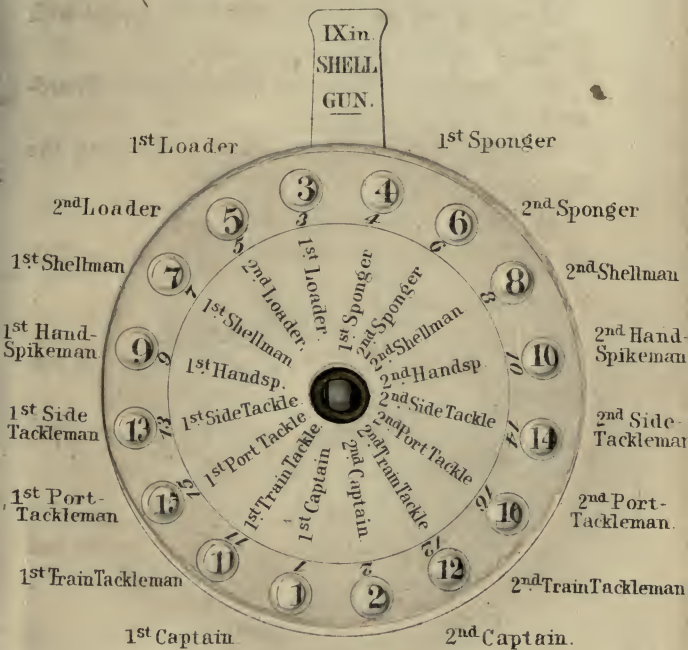 IXin.
SHELL
GUN.
1st Loader
1st Sponger
2nd Loader
2nd Sponger
1st Shellman
2nd Shellman
1st Hand-
Spikeman
2nd Hand-
Spikeman
1st Side
Tackleman
2nd Side-
Tackleman
1st Port-
Tackleman
2nd Port-
Tackleman.
1st TrainTackleman
2nd TrainTackleman
1st Captain
2nd Captain.
3
4
5
6
7
8
9
10
13
14
15
16
11
12
1
2
3
4
5
6
7
8
9
10
13
14
15
16
11
12
1
2
1st Loader.
1st Sponger
2nd Loader.
2nd Sponger
1st Shellman
2nd Shellman
1st Handsp.
2nd Handsp
1st SideTackle.
2nd SideTackle
1st Port Tackle
2nd Port Tackle
1st TrainTackle.
2nd TrainTackle
1st Captain
2nd Captain.